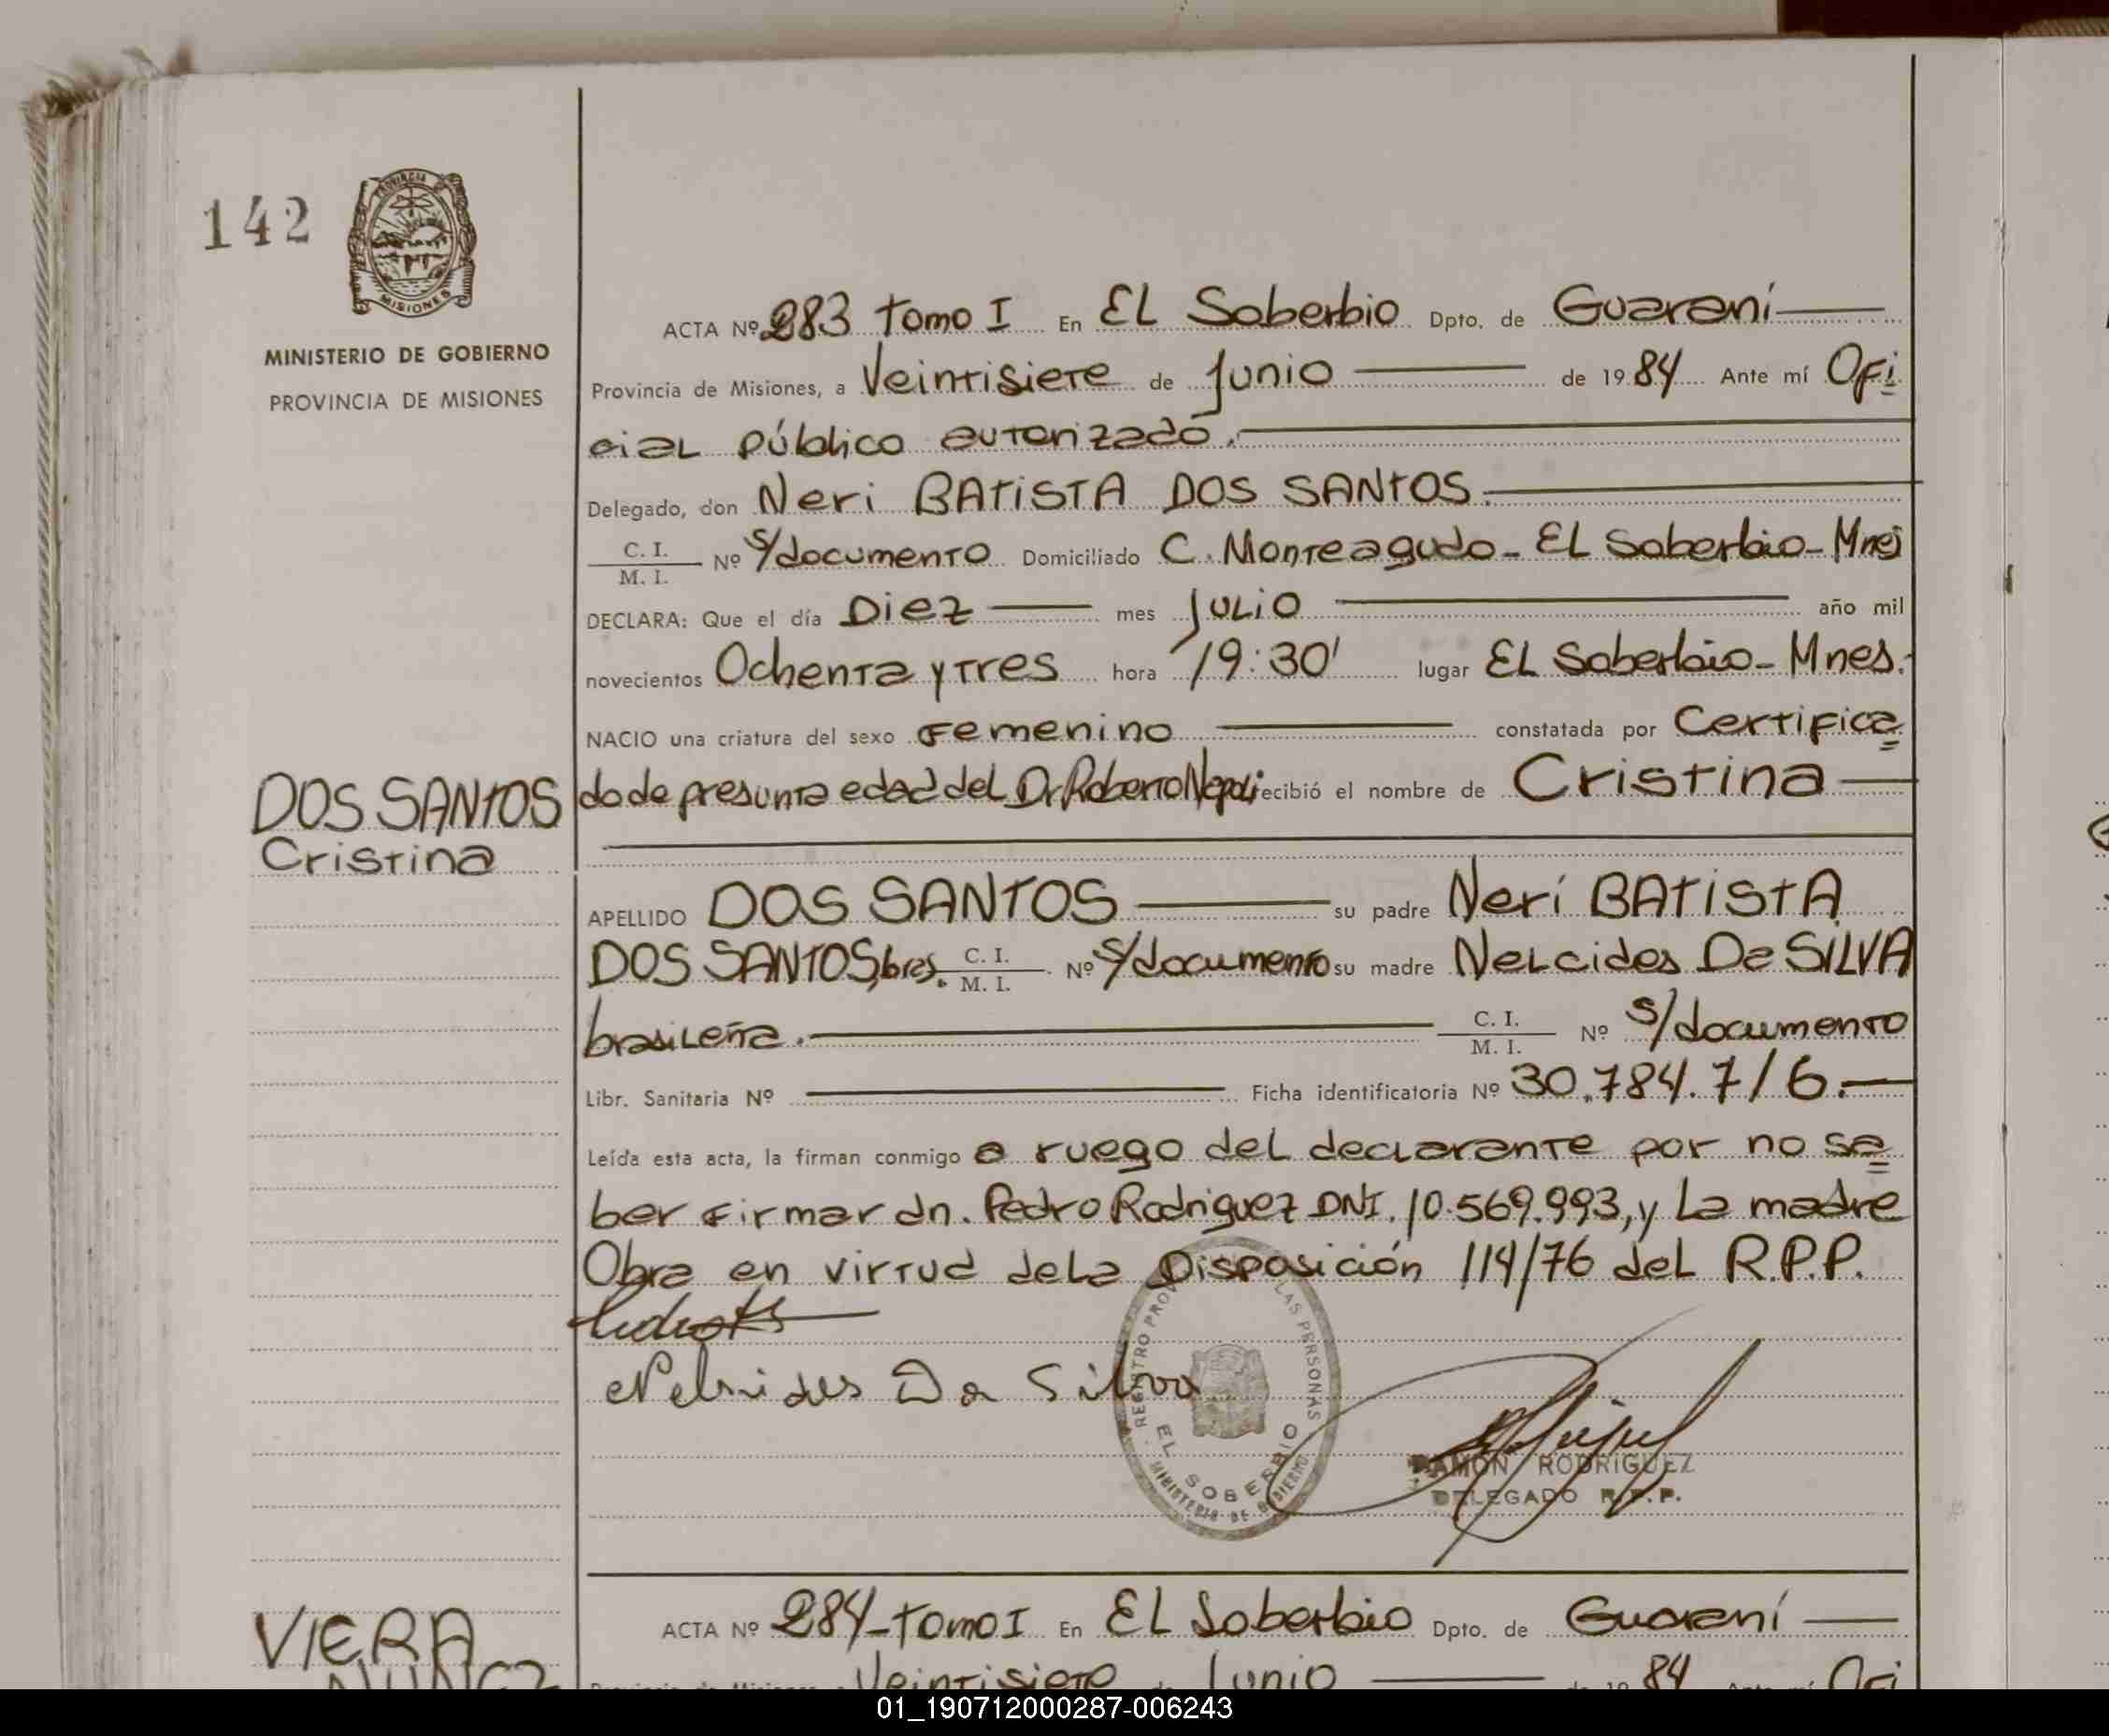 142
PROVINCIA
MISIONES
MINISTERIO DE GOBIERNO
PROVINCIA DE MISIONES
ACTA Nº 283 tomo I En EL Soberbio Dpto. de Guaraní
Provincia de Misiones, a Veintisiete de Junio de 1984 Ante mí Ofi
cial público autorizado.
Delegado, don Neri BATiSTA DOS SANTOS.
C. I.
M. I. Nº s/documento Domiciliado C. Monteagudo - EL Soberbio - Mnes
DECLARA: Que el día Diez mes JULiO año mil
novecientos Ochenta y Tres hora 19:30' lugar EL Soberbio - Mnes.
NACIO una criatura del sexo Femenino constatada por Certifica
DOS SANTOS do de presunta edad del Dr Roberto Napoli recibió el nombre de Cristina
Cristina
APELLIDO DOS SANTOS su padre Neri BATiSTA
DOS SANTOS, bras. C. I.
M. I. Nº s/documento su madre Nelcides De SILVA
brasileña. C. I.
M. I. Nº s/documento
Libr. Sanitaria Nº Ficha identificatoria Nº 30.784.716.
Leída esta acta, la firman conmigo a ruego del declarante por no sa
ber firmar dn. Pedro Rodriguez DNI. 10.569.993, y La madre
Obra en virtud de La Disposición 114/76 del R.P.P.
Nelsides Da Silva
REGISTRO PROV LAS PERSONAS
EL SOBERBIO
MINISTERIO DE GOBIERNO
RAMON RODRIGUEZ
DELEGADO R.P.P.
VIERA ACTA Nº 284 - tomo I En EL Soberbio Dpto. de Guaraní
NUÑEZ Veintisiete de Junio de 1984 Ante mí Ofi
01_190712000287-006243